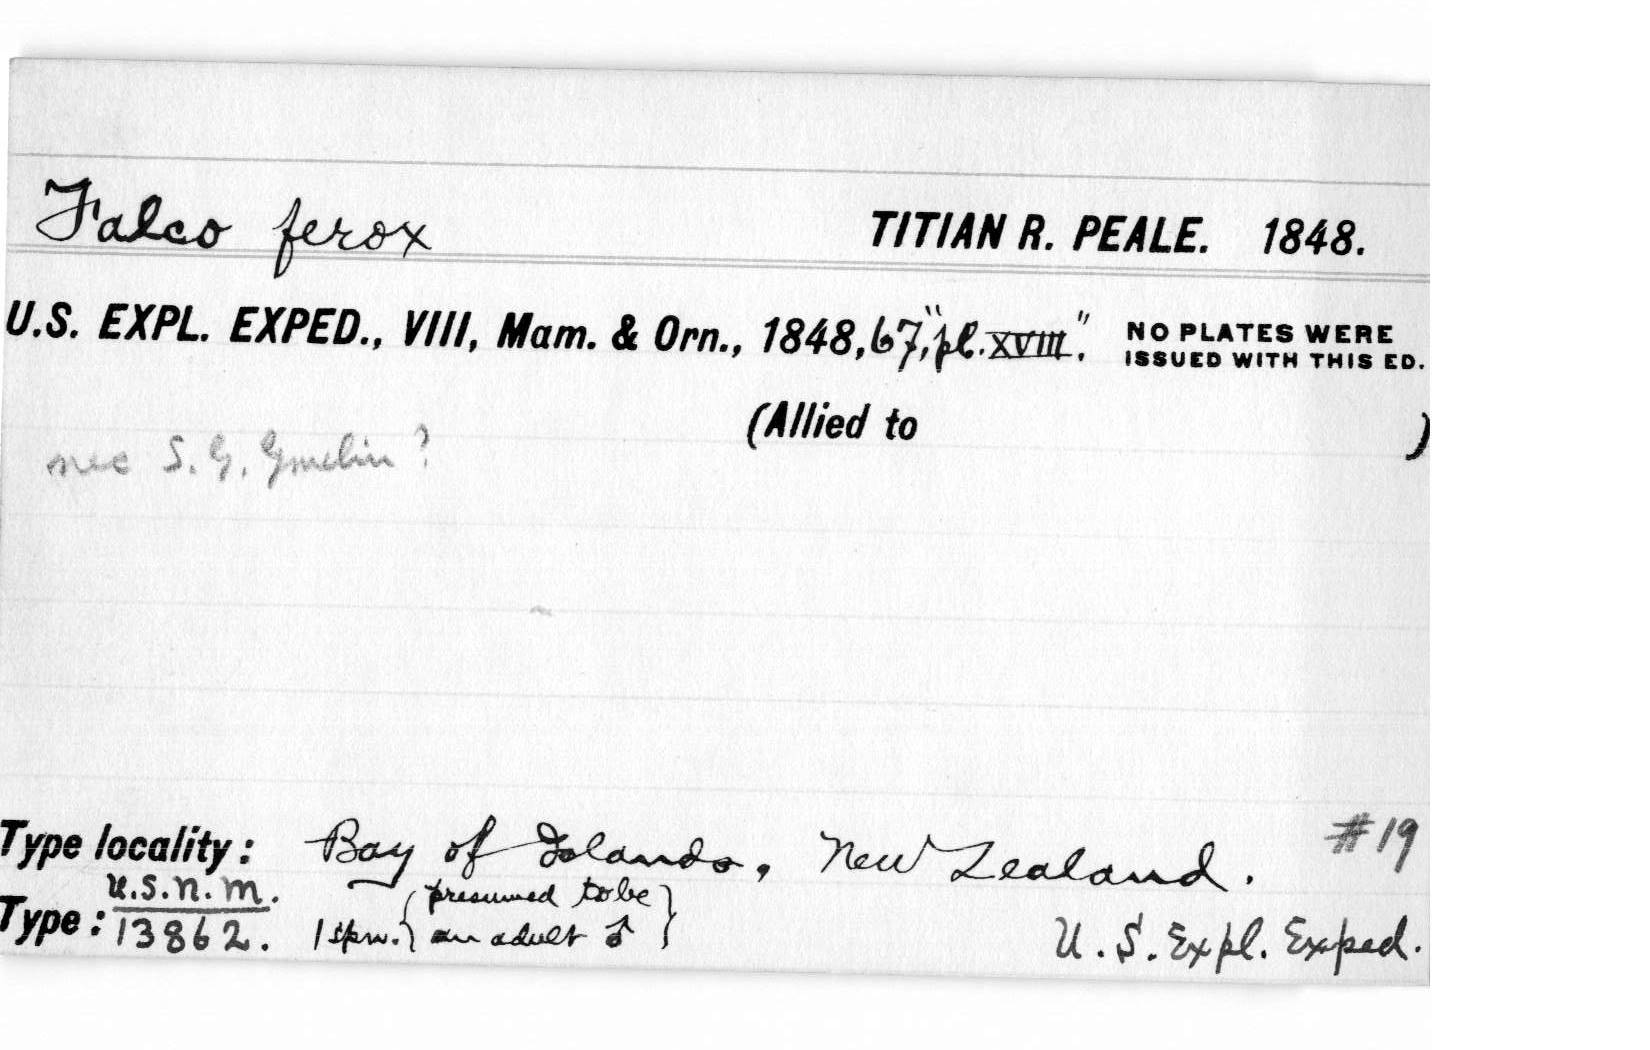 Falco ferox TITIAN R. PEALE. 1848.
U.S. EXPL. EXPED., VIII, Mam. & Orn., 1848, 67, "pl. XVIII". NO PLATES WERE
ISSUED WITH THIS ED.
(Allied to )
nec S. G. Gmelin?
#19
Type locality: Bay of Islands, New Zealand.
U.S.N.M. (presumed to be)
Type: 13862. 1 spm. an adult ♂ U.S. Expl. Exped.